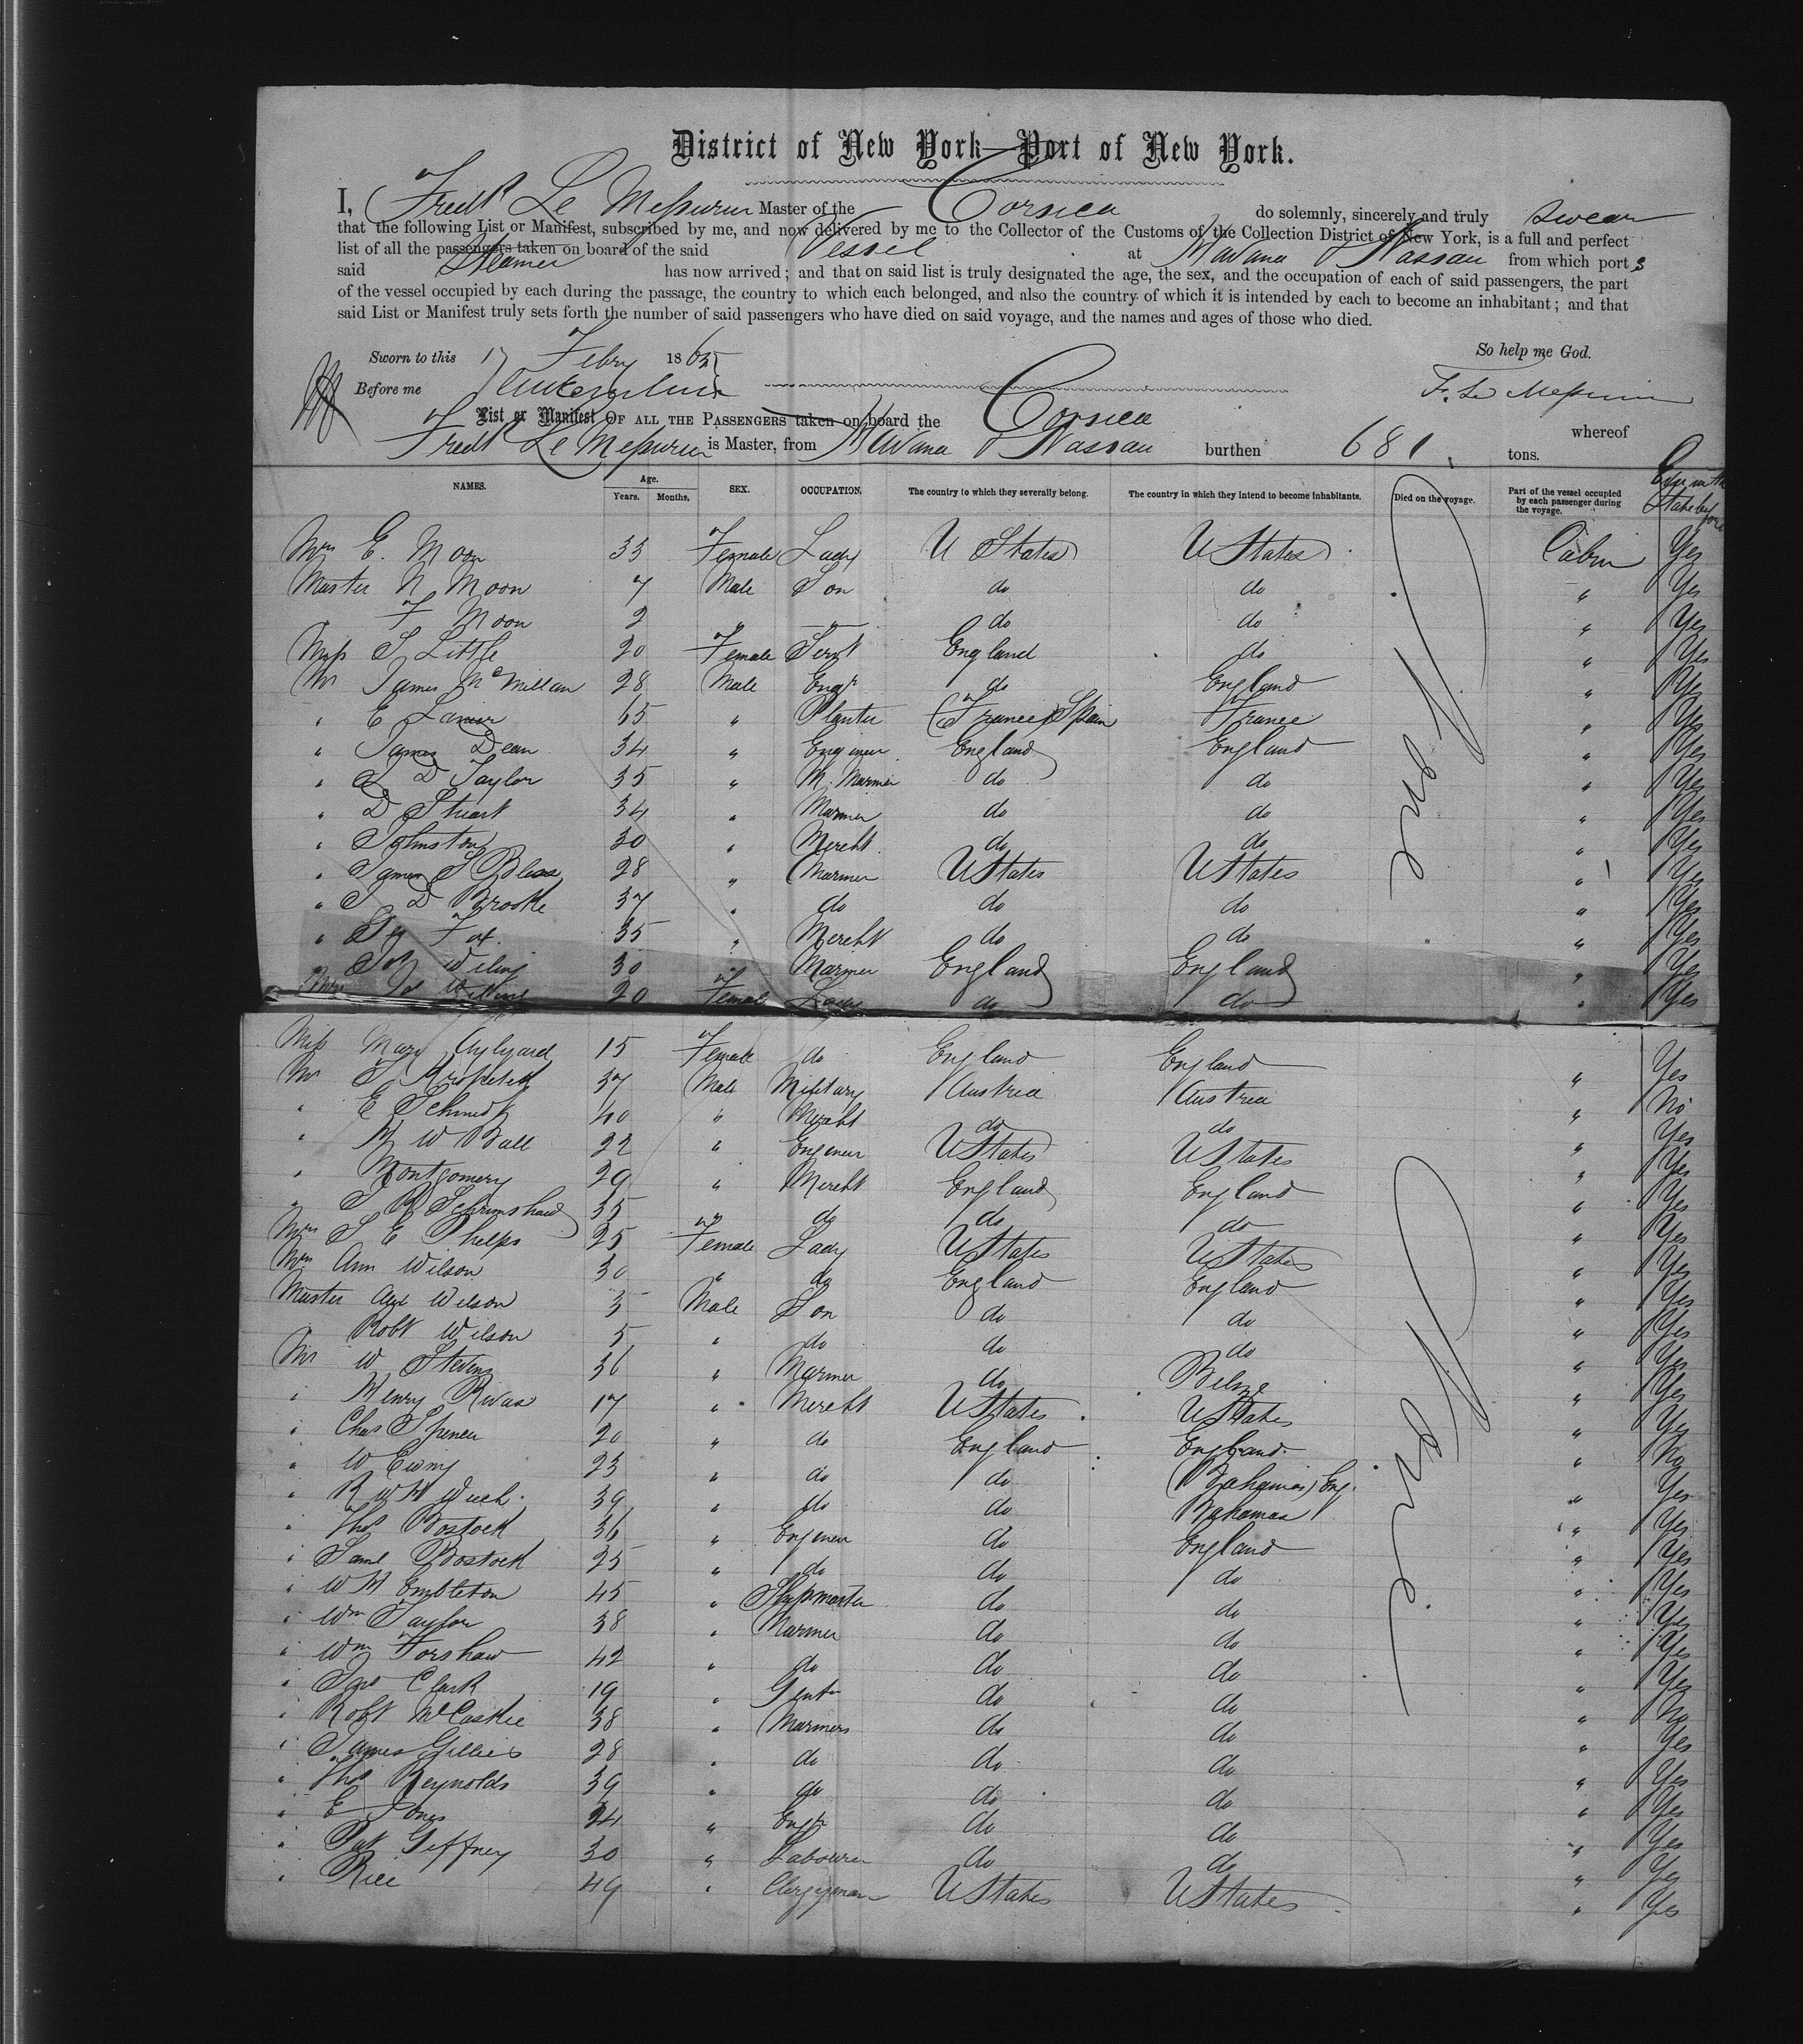 District of New York—Port of New York.
I, Fredk Le Messurier Master of the Corsica do solemnly, sincerely and truly swear
that the following List or Manifest, subscribed by me, and now delivered by me to the Collector of the Customs of the Collection District of New York, is a full and perfect
list of all the passengers taken on board of the said Vessel at Havana & Nassau from which ports
said Steamer has now arrived; and that on said list is truly designated the age, the sex, and the occupation of each of said passengers, the part
of the vessel occupied by each during the passage, the country to which each belonged, and also the country of which it is intended by each to become an inhabitant; and that
said List or Manifest truly sets forth the number of said passengers who have died on said voyage, and the names and ages of those who died.
Sworn to this 17 Feby 1865 So help me God.
Before me F. Le Messurier
List or Manifest OF ALL THE PASSENGERS taken on board the Corsica whereof
Fredk Le Messurier is Master, from Havana & Nassau burthen 681 tons.
NAMES. Age. Years. Months. SEX. OCCUPATION. The country to which they severally belong. The country in which they intend to become inhabitants. Died on the voyage. Part of the vessel occupied by each passenger during the voyage.
Mrs E. Moon 33 Female Lady U States U States Cabin Yes
Master N Moon 7 Male Son do do " Yes
" F Moon 2 " " do do " Yes
Miss S Little 20 Female Servt England do " Yes
Mr James McMillan 28 Male Engr do England " Yes
" E 65 " Planter (France) Spain France " Yes
" James Dean 34 " Engineer England England " Yes
" D Taylor 35 " M. Mariner do do " Yes
" D Stuart 34 " Mariner do do " Yes
" Johnston 30 " Mercht do do " Yes
" James S Bliss 28 " Mariner U States U States " Yes
" J D Brooke 37 " do do do " Yes
" Fox 35 " Mercht do do " Yes
30 " Mariner England England " Yes
Mrs 20 Female Lady do do " Yes
Miss Mary Aylyard 15 Female do England England Yes
Mr 37 Male Military Austria Austria " No
" E Schmidt 40 " Mercht do do " Yes
" H W Ball 22 " Engineer U States U States " Yes
" Montgomery 29 " Mercht England England " Yes
" J R Scrimshaw 35 " do do do " Yes
Mrs S E Phelps 25 Female Lady U States U States " Yes
Mrs Ann Wilson 30 " do England England " Yes
Master Alex Wilson 3 Male Son do do " Yes
" Robt Wilson 5 " do do do " Yes
Mr W Stevens 36 " Mariner do Belize " Yes
" Henry Rivas 17 " Mercht U States U States " Yes
" Chas Spencer 20 " do England England " No
" W Ewing 23 " do do (Bahamas) Eng. " Yes
" R W H 39 " do do Bahamas " Yes
" Thos Bostock 36 " Engineer do England " Yes
" Saml Bostock 25 " do do do " Yes
" W H Embleton 45 " Shipmaster do do " Yes
" Wm Taylor 38 " Mariner do do " Yes
" Wm Forshaw 42 " do do do " Yes
" Jno Clark 19 " Gentn do do " No
" Robt McCaskie 38 " Mariners do do " Yes
" James Gillies 28 " do do do " Yes
" Thos Reynolds 39 " do do do " Yes
" E Jones 24 " Engr do do " Yes
" Pat Giffney 30 " Labourer do do " Yes
" Rice 49 " Clergyman U States U States " Yes